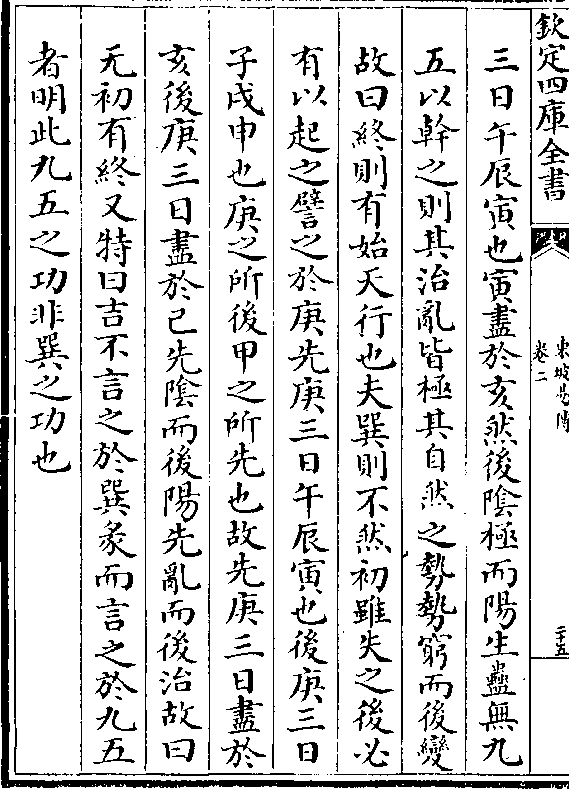 欽定四庫全書
東坡易傳
卷二
二十五
三日午辰寅也寅盡於亥然後陰極而陽生蠱無九
五以幹之則其治亂皆極其自然之勢勢窮而後變
故曰終則有始天行也夫巽則不然初雖失之後必
有以起之譬之於庚先庚三日午辰寅也後庚三日
子戌申也庚之所後甲之所先也故先庚三日盡於
亥後庚三日盡於巳先陰而後陽先亂而後治故曰
无初有終又特曰吉不言之於巽彖而言之於九五
者明此九五之功非巽之功也